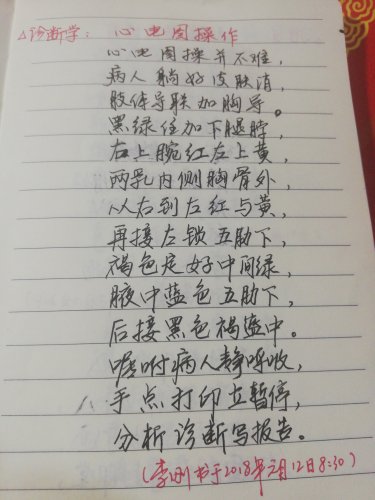 △诊断学：心电图操作
心电图操并不难，
病人躺好皮肤消，
肢体导联加胸导。
黑绿住加下腿脖，
右上腕红左上黄，
两乳内侧胸骨外，
从右到左红与黄，
再接左锁五肋下，
褐色定好中间绿，
腋中蓝色五肋下，
后接黑色褐遮中。
嘱咐病人静呼吸，
手点打印立暂停，
分析诊断写报告。
(李刚书于2018年2月12日8:30)